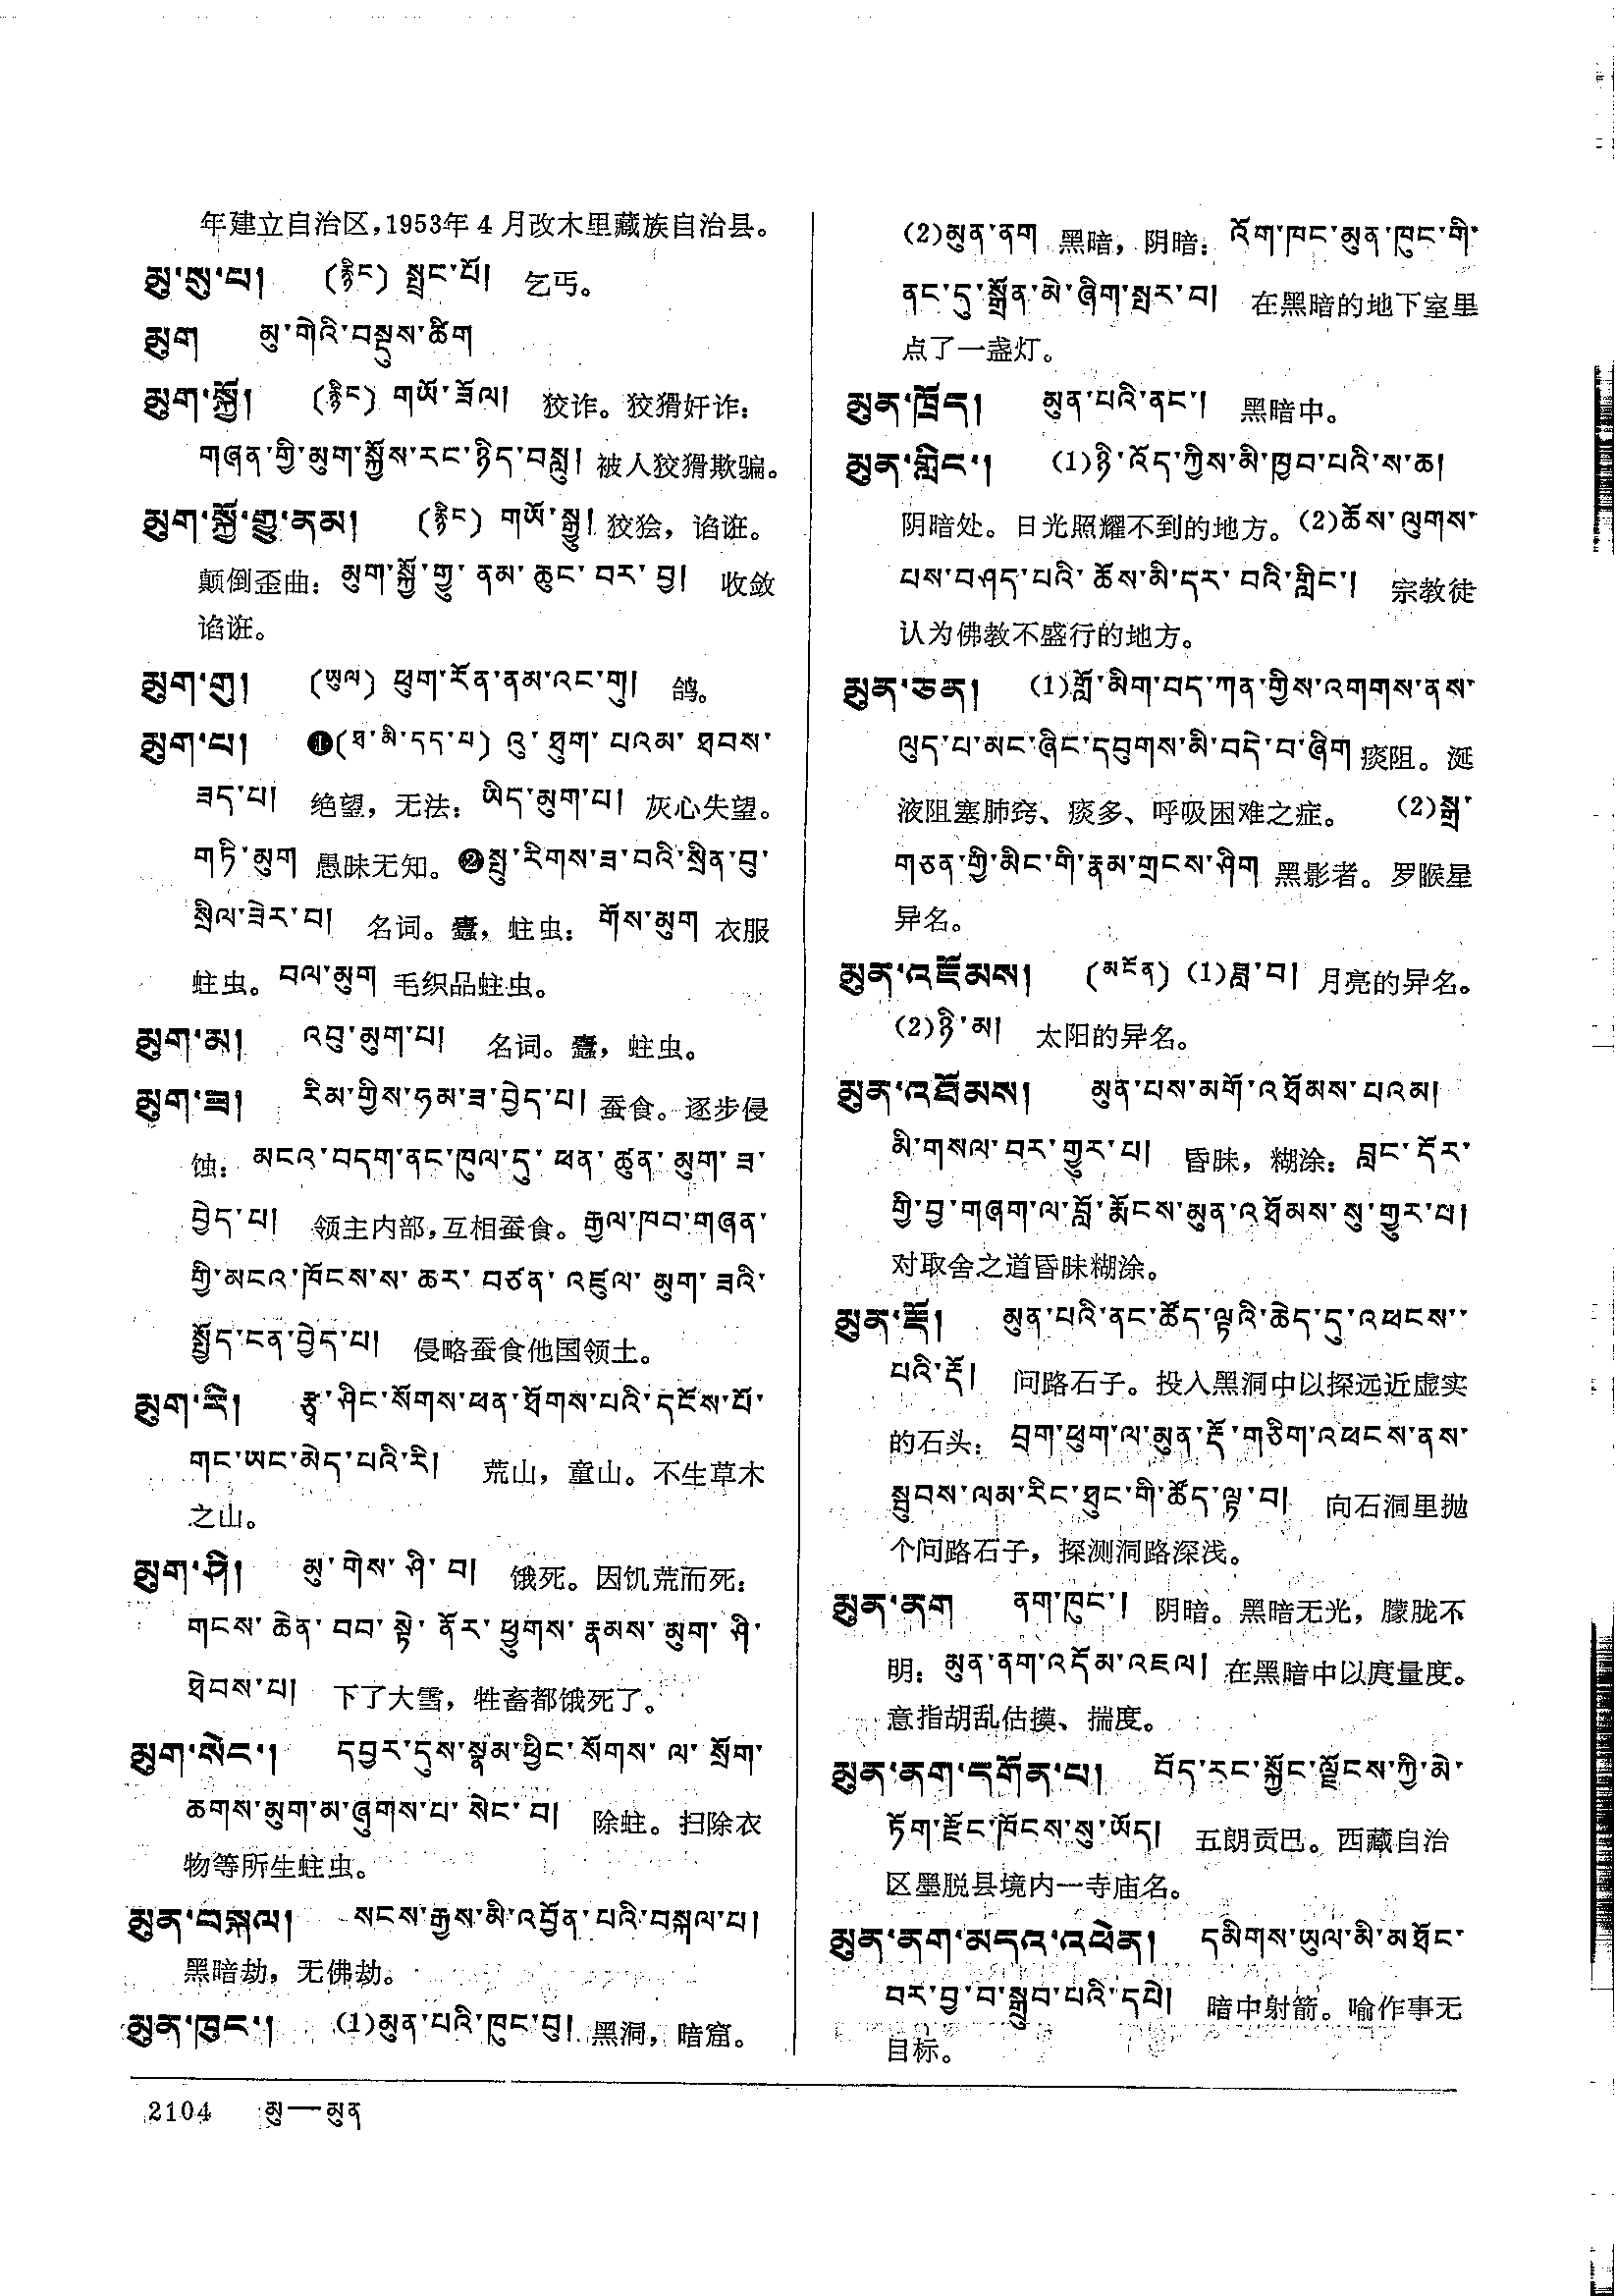 年建立自治区,1953年4月改木里藏族自治县。
མུ་སུ་པ། (རྙིང) སྤྲང་པོ། 乞丐。
མུག མུ་གེའི་བསྡུས་ཚིག
མུག་སྐྱོ། (རྙིང) གཡོ་ཟོལ། 狡诈。狡猾奸诈:
གཞན་གྱི་མུག་སྐྱོས་རང་ཉིད་བསླུ། 被人狡猾欺骗。
མུག་སྐྱོ་གྱུ་ནམ། (རྙིང) གཡོ་སྒྱུ། 狡狯，谄诳。
颠倒歪曲: མུག་སྐྱོ་གྱུ་ནམ་ཆུང་བར་བྱ། 收敛
谄诳。
མུག་གུ། (ཡུལ) ཕུག་རོན་ནམ་འང་གུ། 鸽。
མུག་པ། ❶(ཐ་མི་དད་པ) འུ་ཐུག་པའམ་ཐབས་
ཟད་པ། 绝望，无法: ཡིད་མུག་པ། 灰心失望。
གཏི་མུག 愚昧无知。❷སྤུ་རིགས་ཟ་བའི་སྲིན་བུ་
སྲིལ་ཟེར་བ། 名词。蠹，蛀虫: གོས་མུག 衣服
蛀虫。བལ་མུག 毛织品蛀虫。
མུག་མ། འབུ་མུག་པ། 名词。蠹，蛀虫。
མུག་ཟ། རིམ་གྱིས་ཧམ་ཟ་བྱེད་པ། 蚕食。逐步侵
蚀: མངའ་བདག་ནང་ཁུལ་དུ་ཕན་ཚུན་མུག་ཟ་
བྱེད་པ། 领主内部,互相蚕食。རྒྱལ་ཁབ་གཞན་
གྱི་མངའ་ཁོངས་ས་ཆར་བཙན་འཛུལ་མུག་ཟའི་
སྤྱོད་ངན་བྱེད་པ། 侵略蚕食他国领土。
མུག་རི། རྩྭ་ཤིང་སོགས་ཕན་ཐོགས་པའི་དངོས་པོ་
གང་ཡང་མེད་པའི་རི། 荒山，童山。不生草木
之山。
མུག་ཤི། མུ་གེས་ཤི་བ། 饿死。因饥荒而死:
གངས་ཆེན་བབ་སྟེ་ནོར་ཕྱུགས་རྣམས་མུག་ཤི་
ཐེབས་པ། 下了大雪，牲畜都饿死了。
མུག་སེང་། དབྱར་དུས་སྣམ་ཕྱིང་སོགས་ལ་སྲོག་
ཆགས་མུག་མ་ཞུགས་པ་སེང་བ། 除蛀。扫除衣
物等所生蛀虫。
མུན་བསྐལ། སངས་རྒྱས་མི་འབྱོན་པའི་བསྐལ་པ།
黑暗劫，无佛劫。
མུན་ཁུང་། (1)མུན་པའི་ཁུང་བུ། 黑洞，暗窟。
(2)མུན་ནག 黑暗，阴暗: འོག་ཁང་མུན་ཁུང་གི་
ནང་དུ་སྒྲོན་མེ་ཞིག་སྤར་བ། 在黑暗的地下室里
点了一盏灯。
མུན་ཁྲོད། མུན་པའི་ནང་། 黑暗中。
མུན་གླིང་། (1)ཉི་འོད་ཀྱིས་མི་ཁྱབ་པའི་ས་ཆ།
阴暗处。日光照耀不到的地方。(2)ཆོས་ལུགས་
པས་བཤད་པའི་ཆོས་མི་དར་བའི་གླིང་། 宗教徒
认为佛教不盛行的地方。
མུན་ཅན། (1)གློ་མིག་བད་ཀན་གྱིས་འགགས་ནས་
ལུད་པ་མང་ཞིང་དབུགས་མི་བདེ་བ་ཞིག 痰阻。涎
液阻塞肺窍、痰多、呼吸困难之症。 (2)སྒྲ་
གཅན་གྱི་མིང་གི་རྣམ་གྲངས་ཤིག 黑影者。罗睺星
异名。
མུན་འཇོམས། (མངོན) (1)ཟླ་བ། 月亮的异名。
(2)ཉི་མ། 太阳的异名。
མུན་འཐོམས། མུན་པས་མགོ་འཐོམས་པའམ།
མི་གསལ་བར་གྱུར་པ། 昏昧，糊涂: བླང་དོར་
གྱི་བྱ་གཞག་ལ་བློ་རྨོངས་མུན་འཐོམས་སུ་གྱུར་པ།
对取舍之道昏昧糊涂。
མུན་རྡོ། མུན་པའི་ནང་ཚོད་ལྟའི་ཆེད་དུ་འཕངས་
པའི་རྡོ། 问路石子。投入黑洞中以探远近虚实
的石头: བྲག་ཕུག་ལ་མུན་རྡོ་གཅིག་འཕངས་ནས་
སྦུབས་ལམ་རིང་ཐུང་གི་ཚོད་ལྟ་བ། 向石洞里抛
个问路石子，探测洞路深浅。
མུན་ནག ནག་ཁུང་། 阴暗。黑暗无光，朦胧不
明: མུན་ནག་འདོམ་འཇལ། 在黑暗中以庹量度。
意指胡乱估摸、揣度。
མུན་ནག་དགོན་པ། བོད་རང་སྐྱོང་ལྗོངས་ཀྱི་མེ་
ཏོག་རྫོང་ཁོངས་སུ་ཡོད། 五朗贡巴。西藏自治
区墨脱县境内一寺庙名。
མུན་ནག་མདའ་འཕེན། དམིགས་ཡུལ་མི་མཐོང་
བར་བྱ་བ་སྒྲུབ་པའི་དཔེ། 暗中射箭。喻作事无
目标。
2104 མུ—མུན